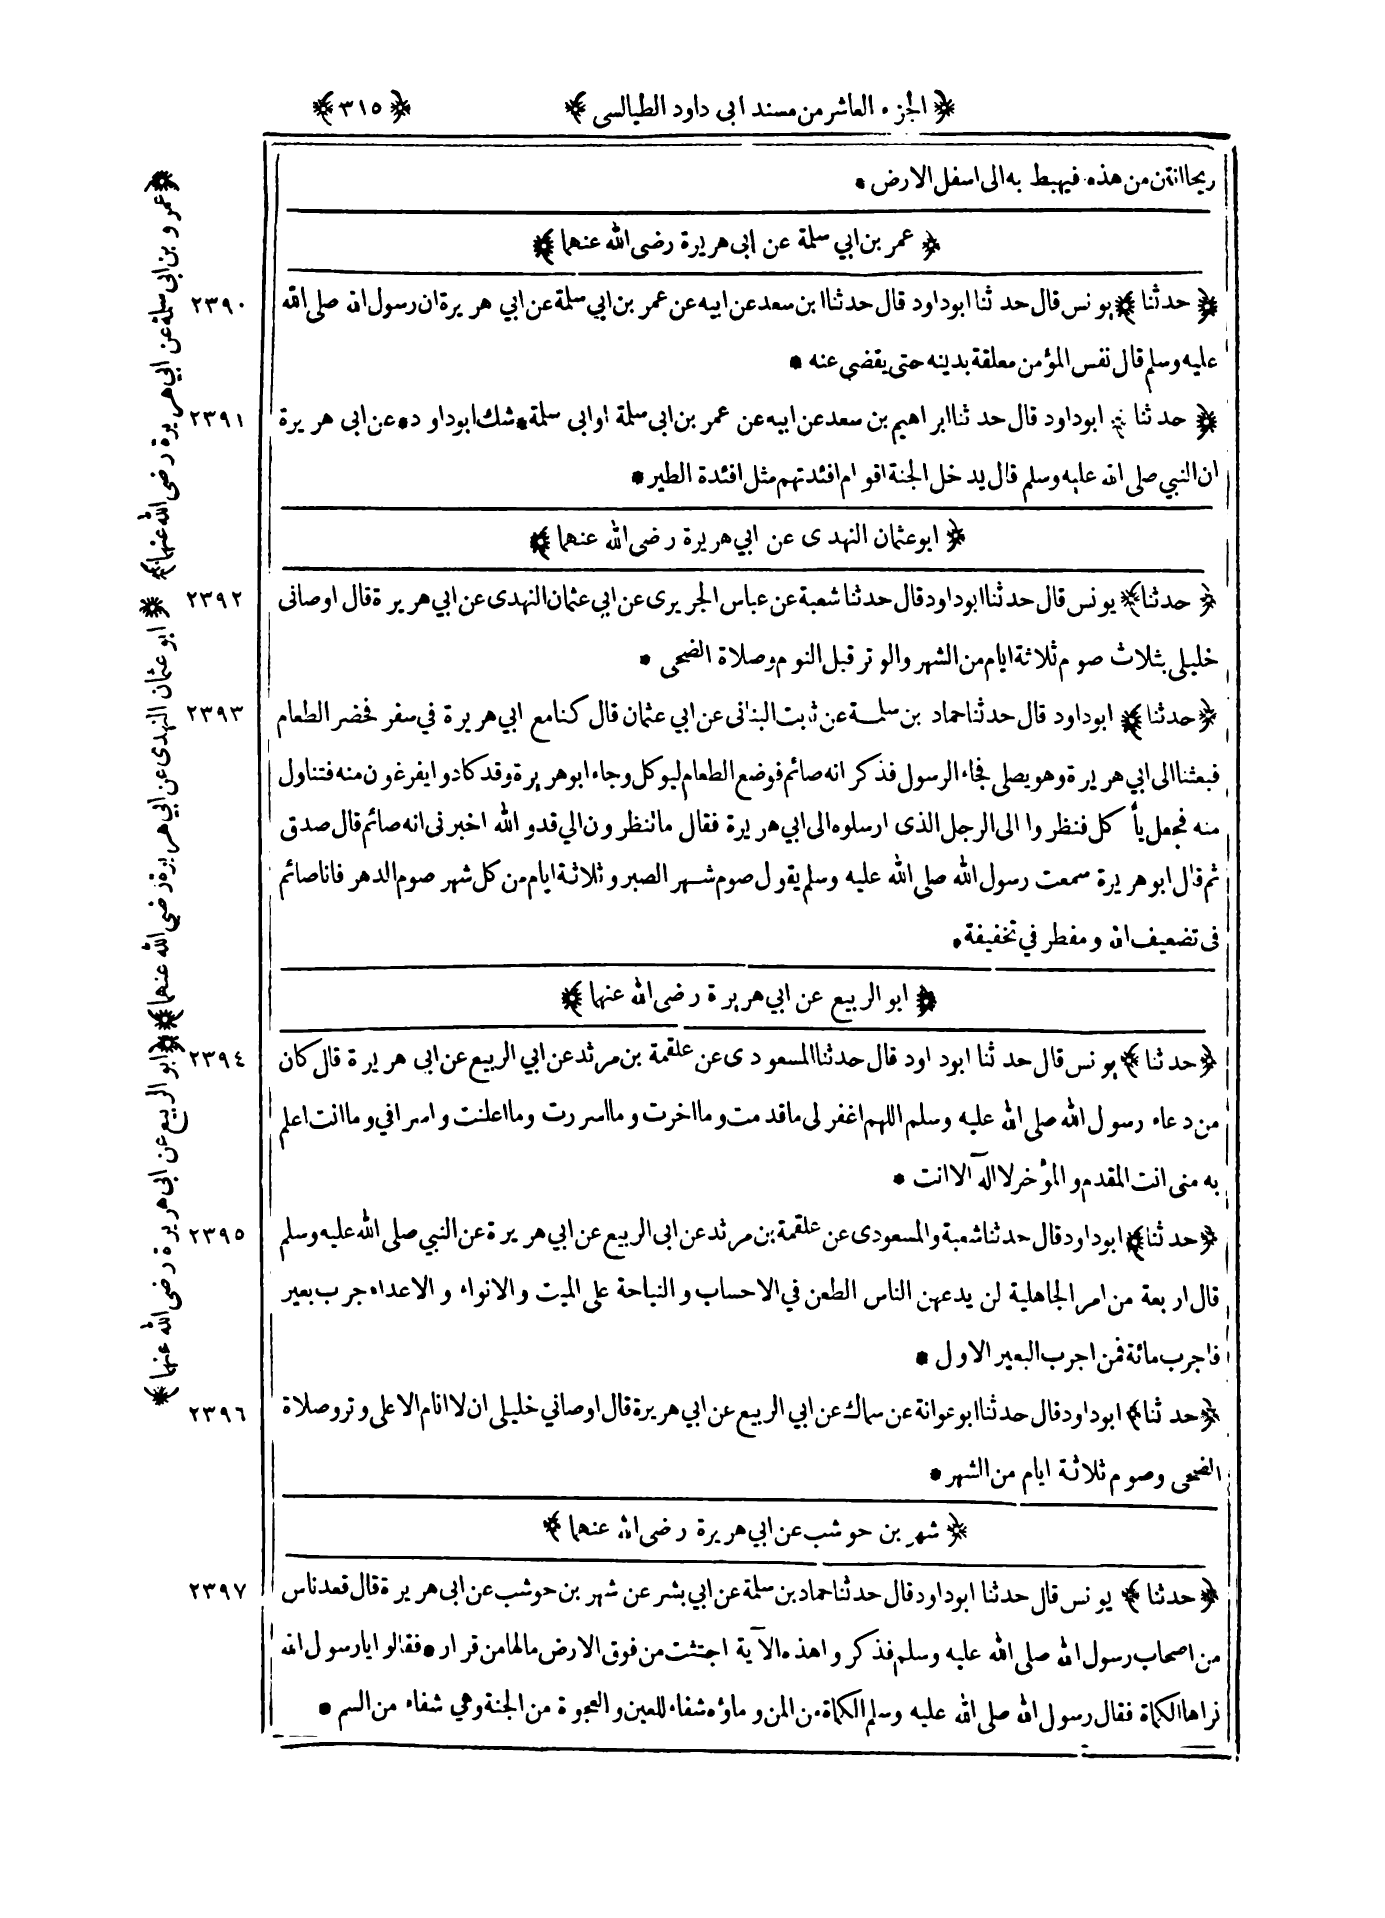 ﴿ الجزء العاشر من مسند ابى داود الطيالسى ﴾ ﴿ ٣١٥ ﴾
ريحا انتن من هذه فيهبط به الى اسفل الارض *
﴿ عمر بن ابي سلمة عن ابى هريرة رضى الله عنهما ﴾
٢٣٩٠ ﴿ حدثنا ﴾ يونس قال حدثنا ابو داود قال حدثنا ابن سعد عن ابيه عن عمر بن ابي سلمة عن ابي هريرة ان رسول الله صلى الله
عليه وسلم قال نفس المؤمن معلقة بدينه حتى يقضى عنه *
٢٣٩١ ﴿ حدثنا ﴾ ابو داود قال حدثنا ابراهيم بن سعد عن ابيه عن عمر بن ابى سلمة او ابى سلمة * شك ابو داود * عن ابى هريرة
ان النبي صلى الله عليه وسلم قال يدخل الجنة اقوام افئدتهم مثل افئدة الطير *
﴿ ابو عثمان النهدى عن ابي هريرة رضى الله عنهما ﴾
٢٣٩٢ ﴿ حدثنا ﴾ يونس قال حدثنا ابو داود قال حدثنا شعبة عن عباس الجريرى عن ابي عثمان النهدى عن ابي هريرة قال اوصانى
خليلى بثلاث صوم ثلاثة ايام من الشهر والوتر قبل النوم وصلاة الضحى *
٢٣٩٣ ﴿ حدثنا ﴾ ابو داود قال حدثنا حماد بن سلمة عن ثابت البنانى عن ابي عثمان قال كنا مع ابي هريرة في سفر فحضر الطعام
فبعثنا الى ابي هريرة وهو يصلى فجاء الرسول فذكر انه صائم فوضع الطعام ليوكل وجاء ابو هريرة وقد كادوا يفرغون منه فتناول
منه فجعل يأكل فنظروا الى الرجل الذى ارسلوه الى ابي هريرة فقال ما تنظرون الي قد والله اخبرنى انه صائم قال صدق
ثم قال ابو هريرة سمعت رسول الله صلى الله عليه وسلم يقول صوم شهر الصبر وثلاثة ايام من كل شهر صوم الدهر فانا صائم
فى تضعيف الله ومفطر في تخفيفة *
﴿ ابو الربيع عن ابي هريرة رضى الله عنهما ﴾
٢٣٩٤ ﴿ حدثنا ﴾ يونس قال حدثنا ابو داود قال حدثنا المسعودى عن علقمة بن مرثد عن ابي الربيع عن ابى هريرة قال كان
من دعاء رسول الله صلى الله عليه وسلم اللهم اغفر لى ما قدمت وما اخرت وما اسررت وما اعلنت واسرافي وما انت اعلم
به منى انت المقدم والمؤخر لا اله الا انت *
٢٣٩٥ ﴿ حدثنا ﴾ ابو داود قال حدثنا شعبة والمسعودى عن علقمة بن مرثد عن ابى الربيع عن ابي هريرة عن النبي صلى الله عليه وسلم
قال اربعة من امر الجاهلية لن يدعهن الناس الطعن في الاحساب والنياحة على الميت والانواء والاعداء جرب بعير
فاجرب مائة فمن اجرب البعير الاول *
٢٣٩٦ ﴿ حدثنا ﴾ ابو داود قال حدثنا ابو عوانة عن سماك عن ابي الربيع عن ابي هريرة قال اوصاني خليلى ان لا انام الا على وتر وصلاة
الضحى وصوم ثلاثة ايام من الشهر *
﴿ شهر بن حوشب عن ابي هريرة رضى الله عنهما ﴾
٢٣٩٧ ﴿ حدثنا ﴾ يونس قال حدثنا ابو داود قال حدثنا حماد بن سلمة عن ابي بشر عن شهر بن حوشب عن ابى هريرة قال قعد ناس
من اصحاب رسول الله صلى الله عليه وسلم فذكروا هذه الآية اجتثت من فوق الارض ما لها من قرار * فقالوا يا رسول الله
نراها الكماة فقال رسول الله صلى الله عليه وسلم الكماة من المن وماؤه شفاء للعين والعجوة من الجنة وهي شفاء من السم *
﴿ عمرو بن ابى سلمة عن ابي هريرة رضى الله عنهما ﴾
﴿ ابو عثمان النهدى عن ابي هريرة رضي الله عنهما ﴾
﴿ ابو الربيع عن ابى هريرة رضى الله عنهما ﴾